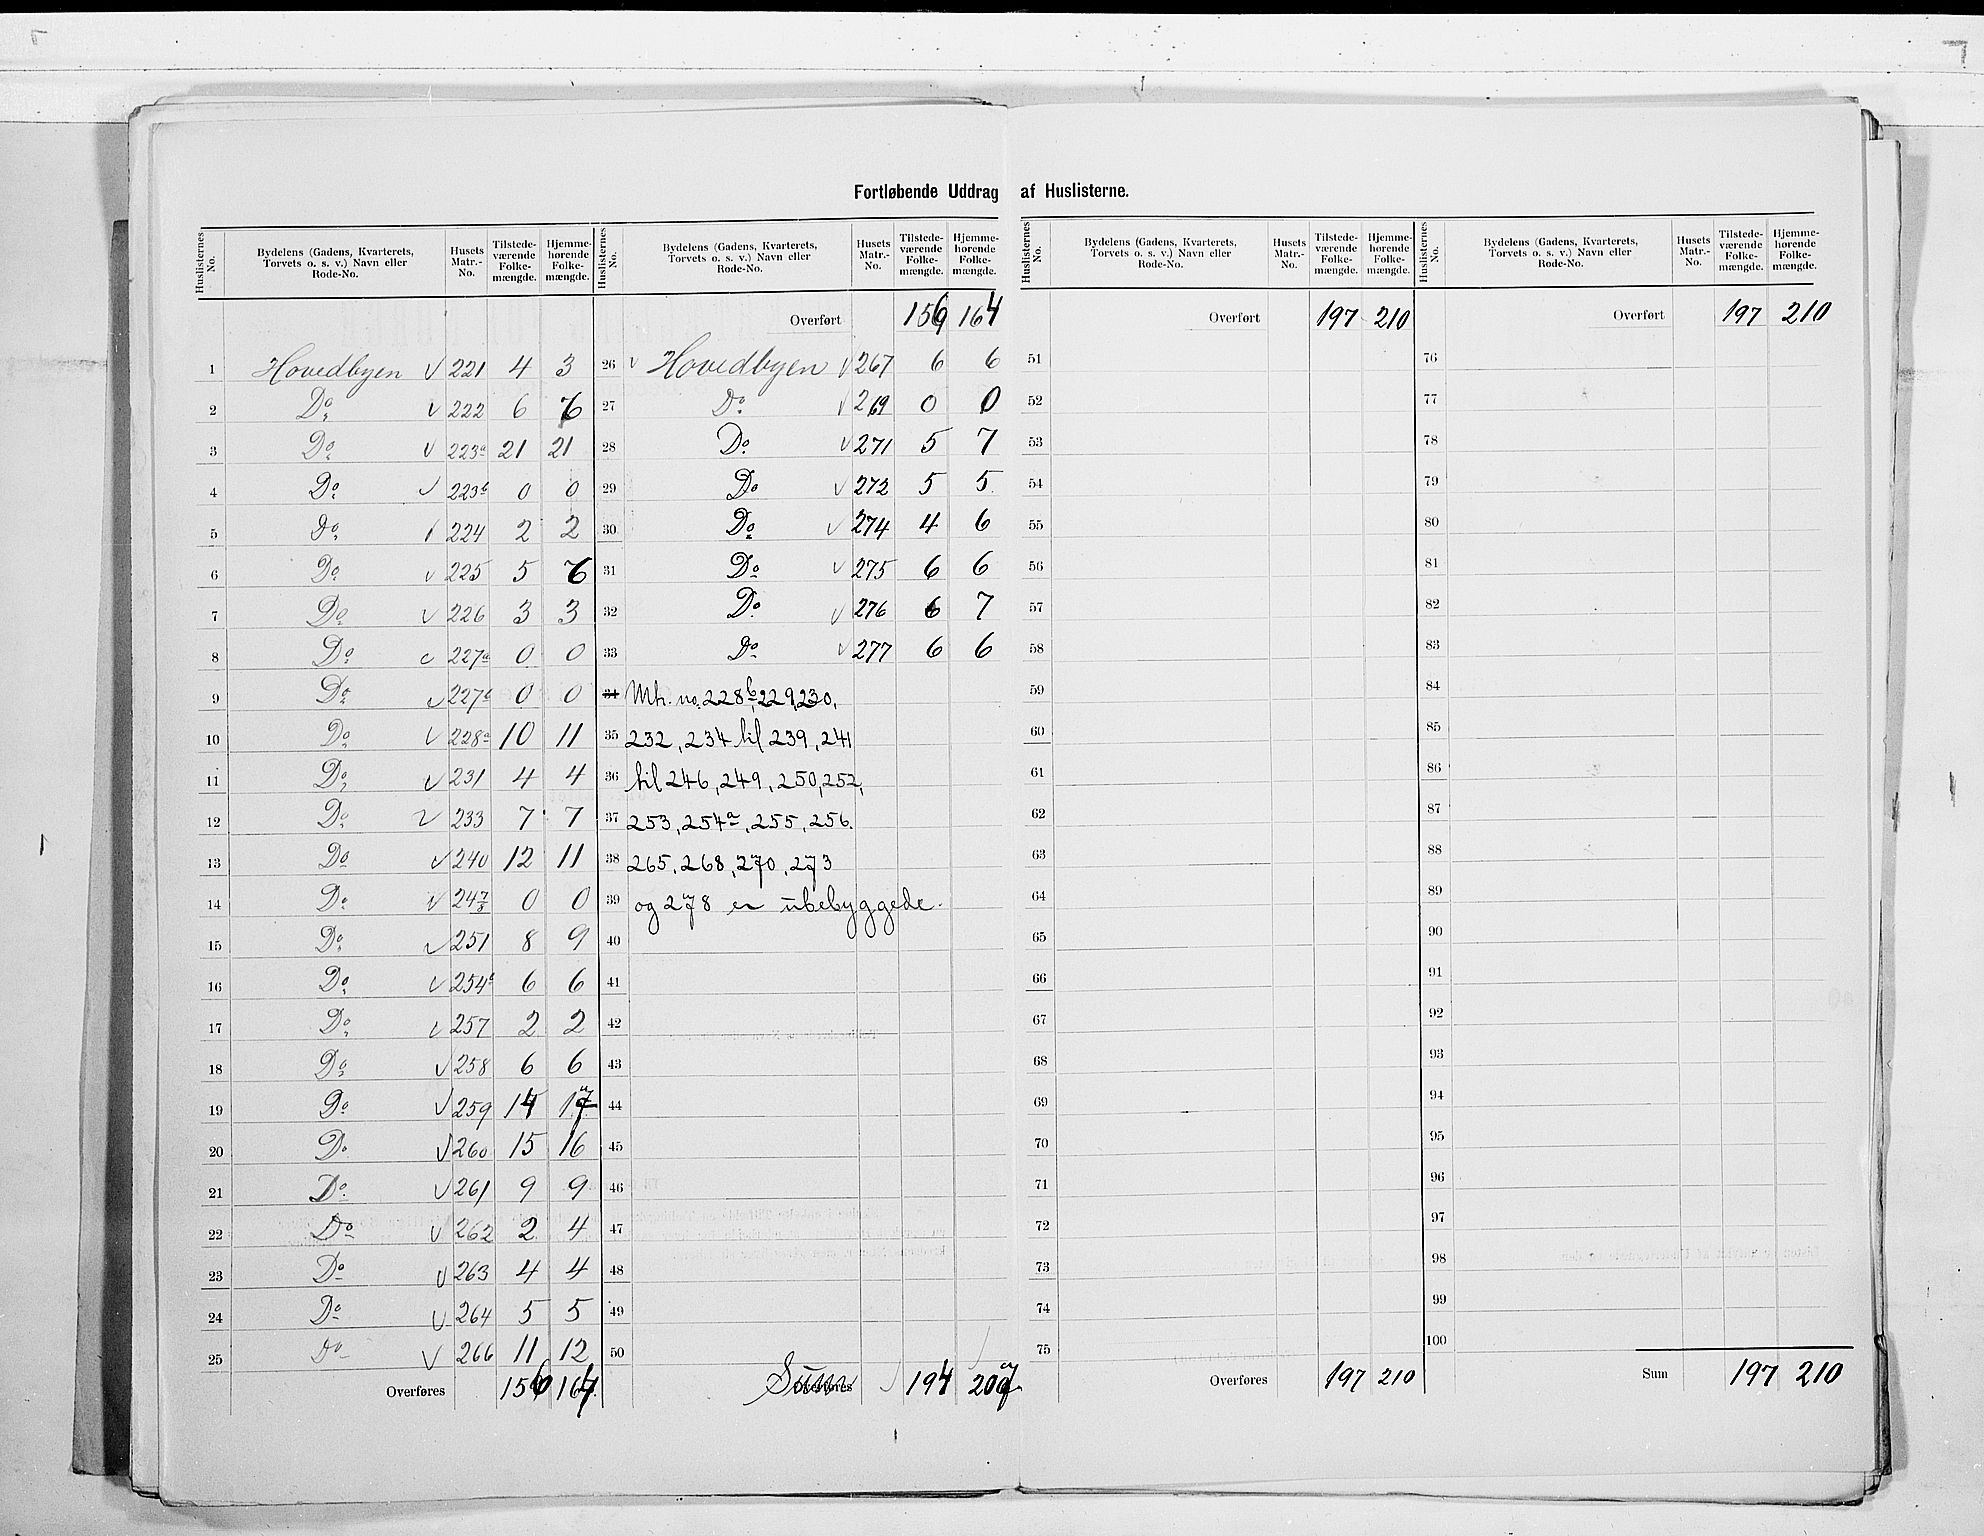 Fortløbende Uddrag af Huslisterne.
Huslisternes No. Bydelens (Gadens, Kvarterets, Torvets o. s. v.) Navn eller Rode-No. Husets Matr.-No. Tilstedeværende Folkemængde. Hjemmehørende Folkemængde.
1 Hovedbyen V 221 4 3
2 Do V 222 6 6
3 Do V 223a 21 21
4 Do V 223b 0 0
5 Do 224 2 2
6 Do V 225 5 6
7 Do V 226 3 3
8 Do 227a 0 0
9 Do V 227b 0 0
10 Do V 228a 10 11
11 Do V 231 4 4
12 Do V 233 7 7
13 Do V 240 12 11
14 Do V 247/8 0 0
15 Do V 251 8 9
16 Do V 254b 6 6
17 Do V 257 2 2
18 Do V 258 6 6
19 Do V 259 14 17
20 Do V 260 15 16
21 Do V 261 9 9
22 Do V 262 2 4
23 Do V 263 4 4
24 Do V 264 5 5
25 Do V 266 11 12
Overføres 156 164
Huslisternes No. Bydelens (Gadens, Kvarterets, Torvets o. s. v.) Navn eller Rode-No. Husets Matr.-No. Tilstedeværende Folkemængde. Hjemmehørende Folkemængde.
Overført 156 164
26 V Hovedbyen V 267 6 6
27 Do V 269 0 0
28 Do V 271 5 7
29 Do V 272 5 5
30 Do V 274 4 6
31 Do V 275 6 6
32 Do V 276 6 7
33 Do V 277 6 6
34 Mtr. no. 228b, 229, 230,
35 232, 234 til 239, 241
36 til 246, 249, 250, 252,
37 253, 254a, 255, 256.
38 265, 268, 270, 273
39 og 278 er ubebyggede.
40
41
42
43
44
45
46
47
48
49
50
Overføres Sum 194 207
Huslisternes No. Bydelens (Gadens, Kvarterets, Torvets o. s. v.) Navn eller Rode-No. Husets Matr.-No. Tilstedeværende Folkemængde. Hjemmehørende Folkemængde.
Overført 197 210
51
52
53
54
55
56
57
58
59
60
61
62
63
64
65
66
67
68
69
70
71
72
73
74
75
Overføres 197 210
Huslisternes No. Bydelens (Gadens, Kvarterets, Torvets o. s. v.) Navn eller Rode-No. Husets Matr.-No. Tilstedeværende Folkemængde. Hjemmehørende Folkemængde.
Overført 197 210
76
77
78
79
80
81
82
83
84
85
86
87
88
89
90
91
92
93
94
95
96
97
98
99
100
Sum 197 210